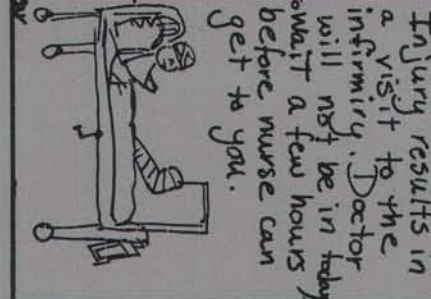 Injury results in
a visit to the
infirmiry. Doctor
will not be in today
wait a few hours
before nurse can
get to you.